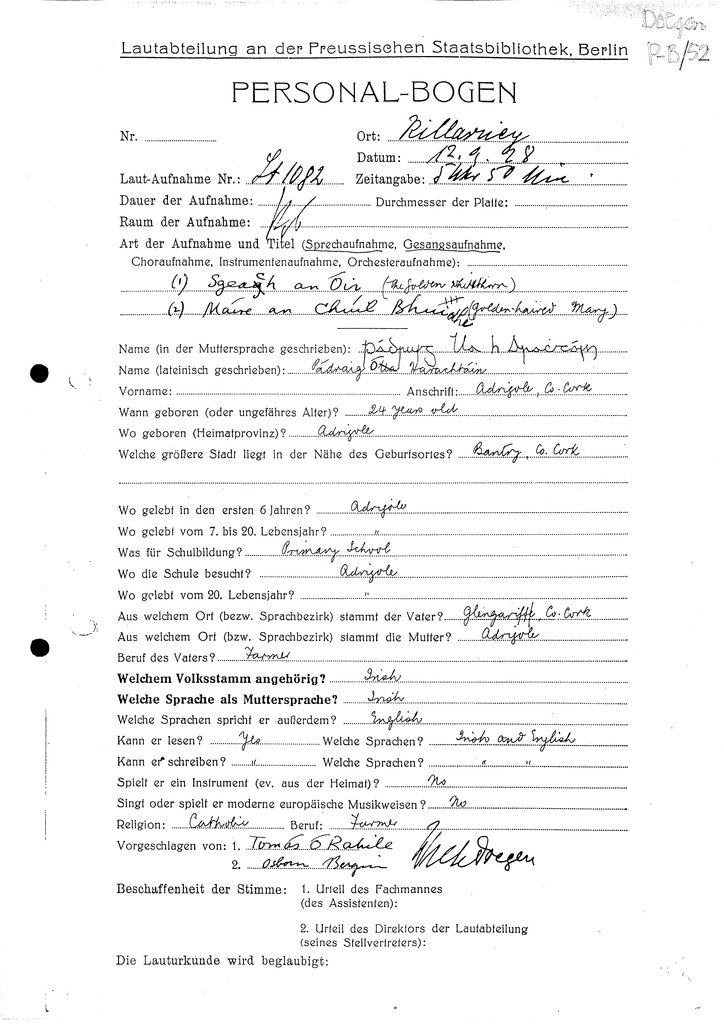 Doegen
P-B/52
Lautabteilung an der Preussischen Staatsbibliothek, Berlin
PERSONAL-BOGEN
Nr. Ort: Killarney
Datum: 12. 9. 28
Laut-Aufnahme Nr.: Lt 1082 Zeitangabe: 5 Uhr 50 Min.
Dauer der Aufnahme: Durchmesser der Platte:
Raum der Aufnahme:
Art der Aufnahme und Titel (Sprechaufnahme, Gesangsaufnahme,
Choraufnahme, Instrumentenaufnahme, Orchesteraufnahme):
(1) Sgeach an Óir (the golden whitethorn)
(2) Máire an Chúil Bhuidhe (golden-haired Mary.)
Name (in der Muttersprache geschrieben): Pádruig Ua h
Name (lateinisch geschrieben): Pádraig Harachtáin
Vorname: Anschrift: Adrigole, Co. Cork
Wann geboren (oder ungefähres Alter)? 24 years old
Wo geboren (Heimatprovinz)? Adrigole
Welche größere Stadt liegt in der Nähe des Geburtsortes? Bantry, Co. Cork
Wo gelebt in den ersten 6 Jahren? Adrigole
Wo gelebt vom 7. bis 20. Lebensjahr? "
Was für Schulbildung? Primary School
Wo die Schule besucht? Adrigole
Wo gelebt vom 20. Lebensjahr? "
Aus welchem Ort (bezw. Sprachbezirk) stammt der Vater? Glengariff, Co. Cork
Aus welchem Ort (bzw. Sprachbezirk) stammt die Mutter? Adrigole
Beruf des Vaters? Farmer
Welchem Volksstamm angehörig? Irish
Welche Sprache als Muttersprache? Irish
Welche Sprachen spricht er außerdem? English
Kann er lesen? Yes Welche Sprachen? Irish and English
Kann er schreiben? " Welche Sprachen? " "
Spielt er ein Instrument (ev. aus der Heimat)? No
Singt oder spielt er moderne europäische Musikweisen? No
Religion: Catholic Beruf: Farmer
Vorgeschlagen von: 1. Tomás Ó Rahile
2. Osborn Bergin Wilh Doegen
Beschaffenheit der Stimme: 1. Urteil des Fachmannes
(des Assistenten):
2. Urteil des Direktors der Lautabteilung
(seines Stellvertreters):
Die Lauturkunde wird beglaubigt: